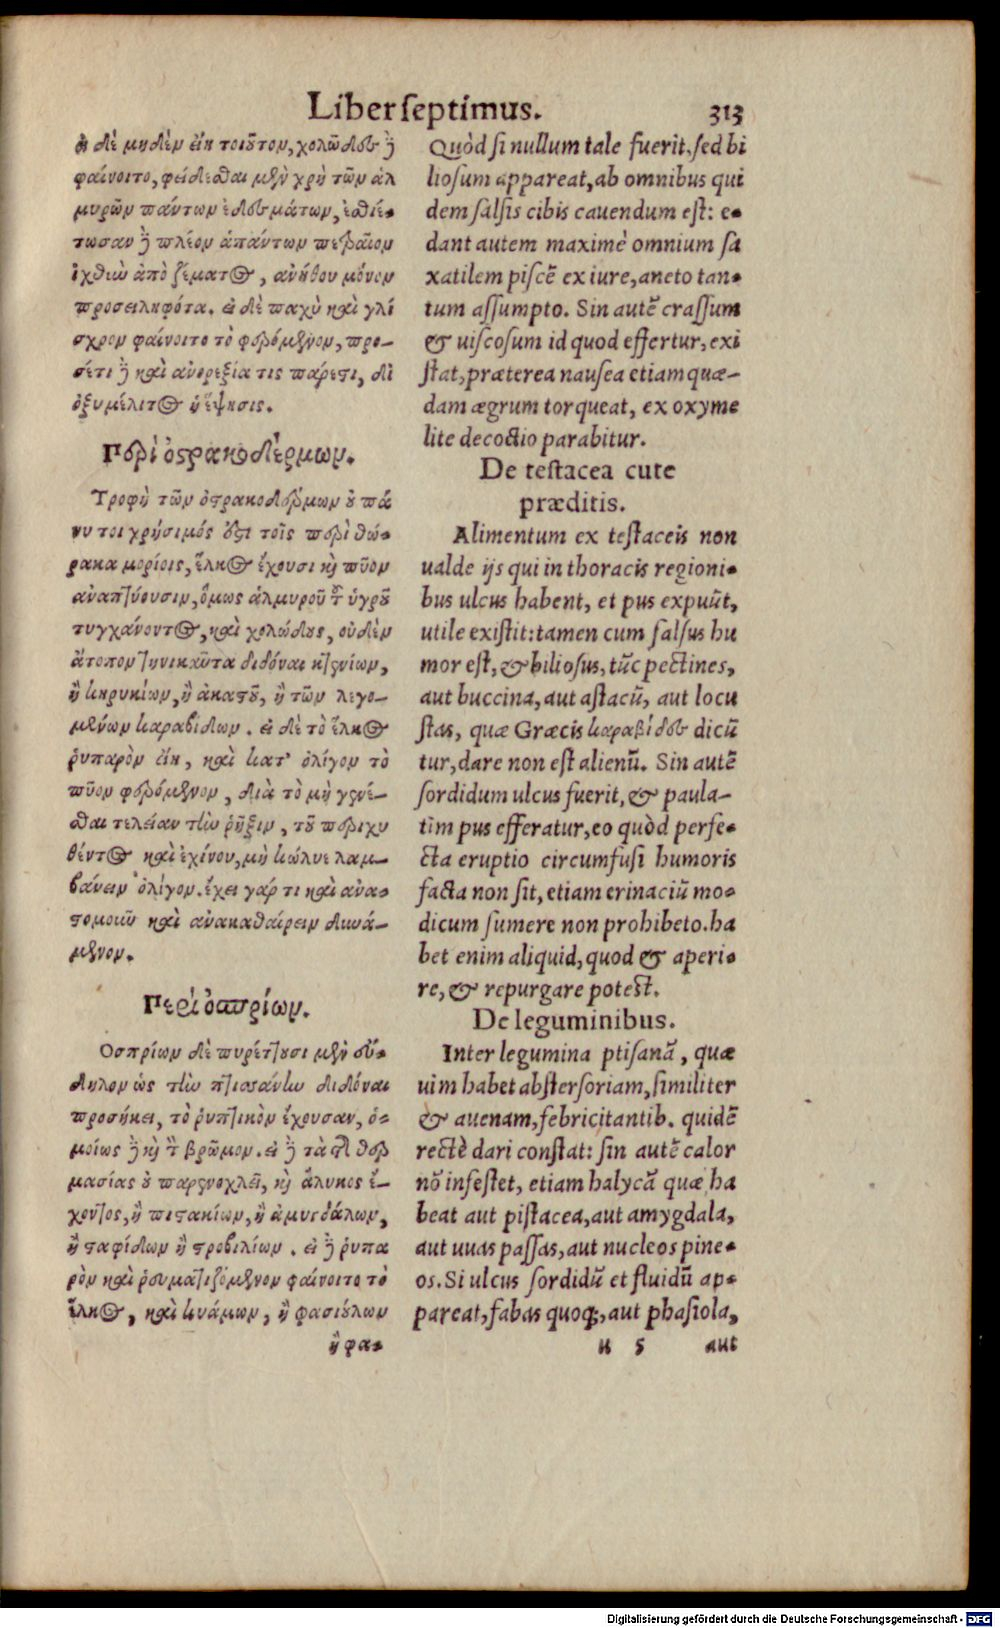 Liber septimus. 313
εἰ δὲ μηδὲν εἴη τοιοῦτον, χολῶδες δὲ
φαίνοιτο, φείδεσθαι μὲν χρὴ τῶν ἁλ
μυρῶν πάντων ἐδεσμάτων, ἐσθιέ-
τωσαν δὲ πλέον ἁπάντων πετραῖον
ἰχθὺν ἀπὸ ζέματος, ἀνήθου μόνον
προσειληφότα. εἰ δὲ παχὺ καὶ γλί
σχρον φαίνοιτο τὸ φερόμενον, προ-
σέτι δὲ καὶ ἀνορεξία τις πάρεστι, δι
ὀξυμέλιτος ἡ ἕψησις.
Περὶ ὀστρακοδέρμων.
Τροφὴ τῶν ὀστρακοδέρμων οὐ πά
νυ τοι χρήσιμός ἐστι τοῖς περὶ θώ-
ρακα μορίοις, ἕλκος ἔχουσι καὶ πῦον
ἀναπτύουσιν, ὅμως ἁλμυροῦ τοῦ ὑγροῦ
τυγχάνοντος, καὶ χολώδους, οὐδὲν
ἄτοπον τηνικαῦτα διδόναι κτενίων,
ἢ κηρυκίων, ἢ ἀκατοῦ, ἢ τῶν λεγο-
μένων καραβίδων. εἰ δὲ τὸ ἕλκος
ῥυπαρὸν εἴη, καὶ κατ' ὀλίγον τὸ
πῦον φερόμενον, διὰ τὸ μὴ γενέ-
σθαι τελείαν τὴν ῥῆξιν, τοῦ περιχυ
θέντος καὶ ἐχίνου, μὴ κώλυε λαμ-
βάνειν ὀλίγον. ἔχει γάρ τι καὶ ἀνα-
στομοῦν καὶ ἀνακαθαίρειν δυνά-
μενον.
Περὶ ὀσπρίων.
Οσπρίων δὲ πυρέττουσι μὲν εὔ-
δηλον ὡς τὴν πτισάνην διδόναι
προσήκει, τὸ ῥυπτικὸν ἔχουσαν, ὁ-
μοίως δὲ καὶ τὸν βρῶμον. εἰ δὲ τὰ τῆς θερ
μασίας οὐ παρενοχλεῖ, καὶ ἄλυκος ἔ-
χοντος, ἢ πιστακίων, ἢ ἀμυγδάλων,
ἢ σταφίδων ἢ στροβιλίων. εἰ δὲ ῥυπα
ρὸν καὶ ῥευματιζόμενον φαίνοιτο τὸ
ἕλκος, καὶ κυάμων, ἢ φασιούλων
ἢ φα-
Quòd si nullum tale fuerit, sed bi
liosum appareat, ab omnibus qui
dem salsis cibis cauendum est: e-
dant autem maximè omnium sa
xatilem piscē ex iure, aneto tan-
tum assumpto. Sin autē crassum
& uiscosum id quod effertur, exi
stat, præterea nausea etiam quæ-
dam ægrum torqueat, ex oxyme
lite decoctio parabitur.
De testacea cute
præditis.
Alimentum ex testaceis non
ualde ijs qui in thoracis regioni-
bus ulcus habent, et pus expuūt,
utile existit: tamen cum salsus hu
mor est, & biliosus, tūc pectines,
aut buccina, aut astacū, aut locu
stas, quæ Græcis καραβίδες dicū
tur, dare non est alienū. Sin autē
sordidum ulcus fuerit, & paula-
tìm pus efferatur, eo quòd perfe-
cta eruptio circumfusi humoris
facta non sit, etiam erinaciū mo-
dicum sumere non prohibeto. ha
bet enim aliquid, quod & aperi-
re, & repurgare potest.
De leguminibus.
Inter legumina ptisanā, quæ
uim habet abstersoriam, similiter
& auenam, febricitantib. quidē
rectè dari constat: sin autē calor
nō infestet, etiam halycā quæ ha
beat aut pistacea, aut amygdala,
aut uuas passas, aut nucleos pine-
os. Si ulcus sordidū et fluidū ap-
pareat, fabas quoq;, aut phasiola,
u 5 aut
Digitalisierung gefördert durch die Deutsche Forschungsgemeinschaft - DFG